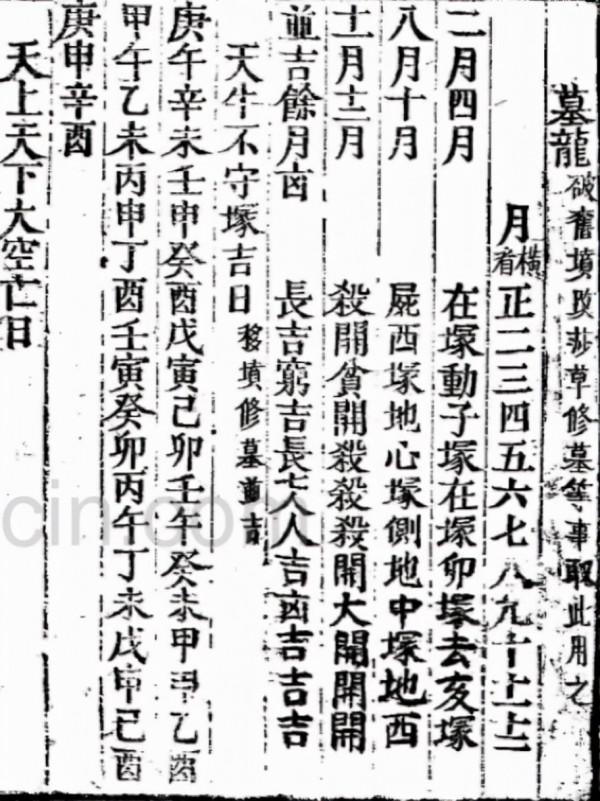 墓龍 破舊墳改莎草修墓等事取此用之
月 橫看 正二三四五六七八九十十一十二
二月四月 在塚動子塚在塚卯塚去亥塚
八月十月 屍西塚地心塚側地中塚地西
十一月十二月 殺開貧開殺殺殺開大開開開
並吉餘月凶 長吉窮吉長七人人吉凶吉吉吉
天牛不守塚吉日 移墳修墓並吉
庚午辛未壬申癸酉戊寅己卯壬午癸未甲申乙酉
甲午乙未丙申丁酉壬寅癸卯丙午丁未戊申己酉
庚申辛酉
天上天下大空亡日
cin.com